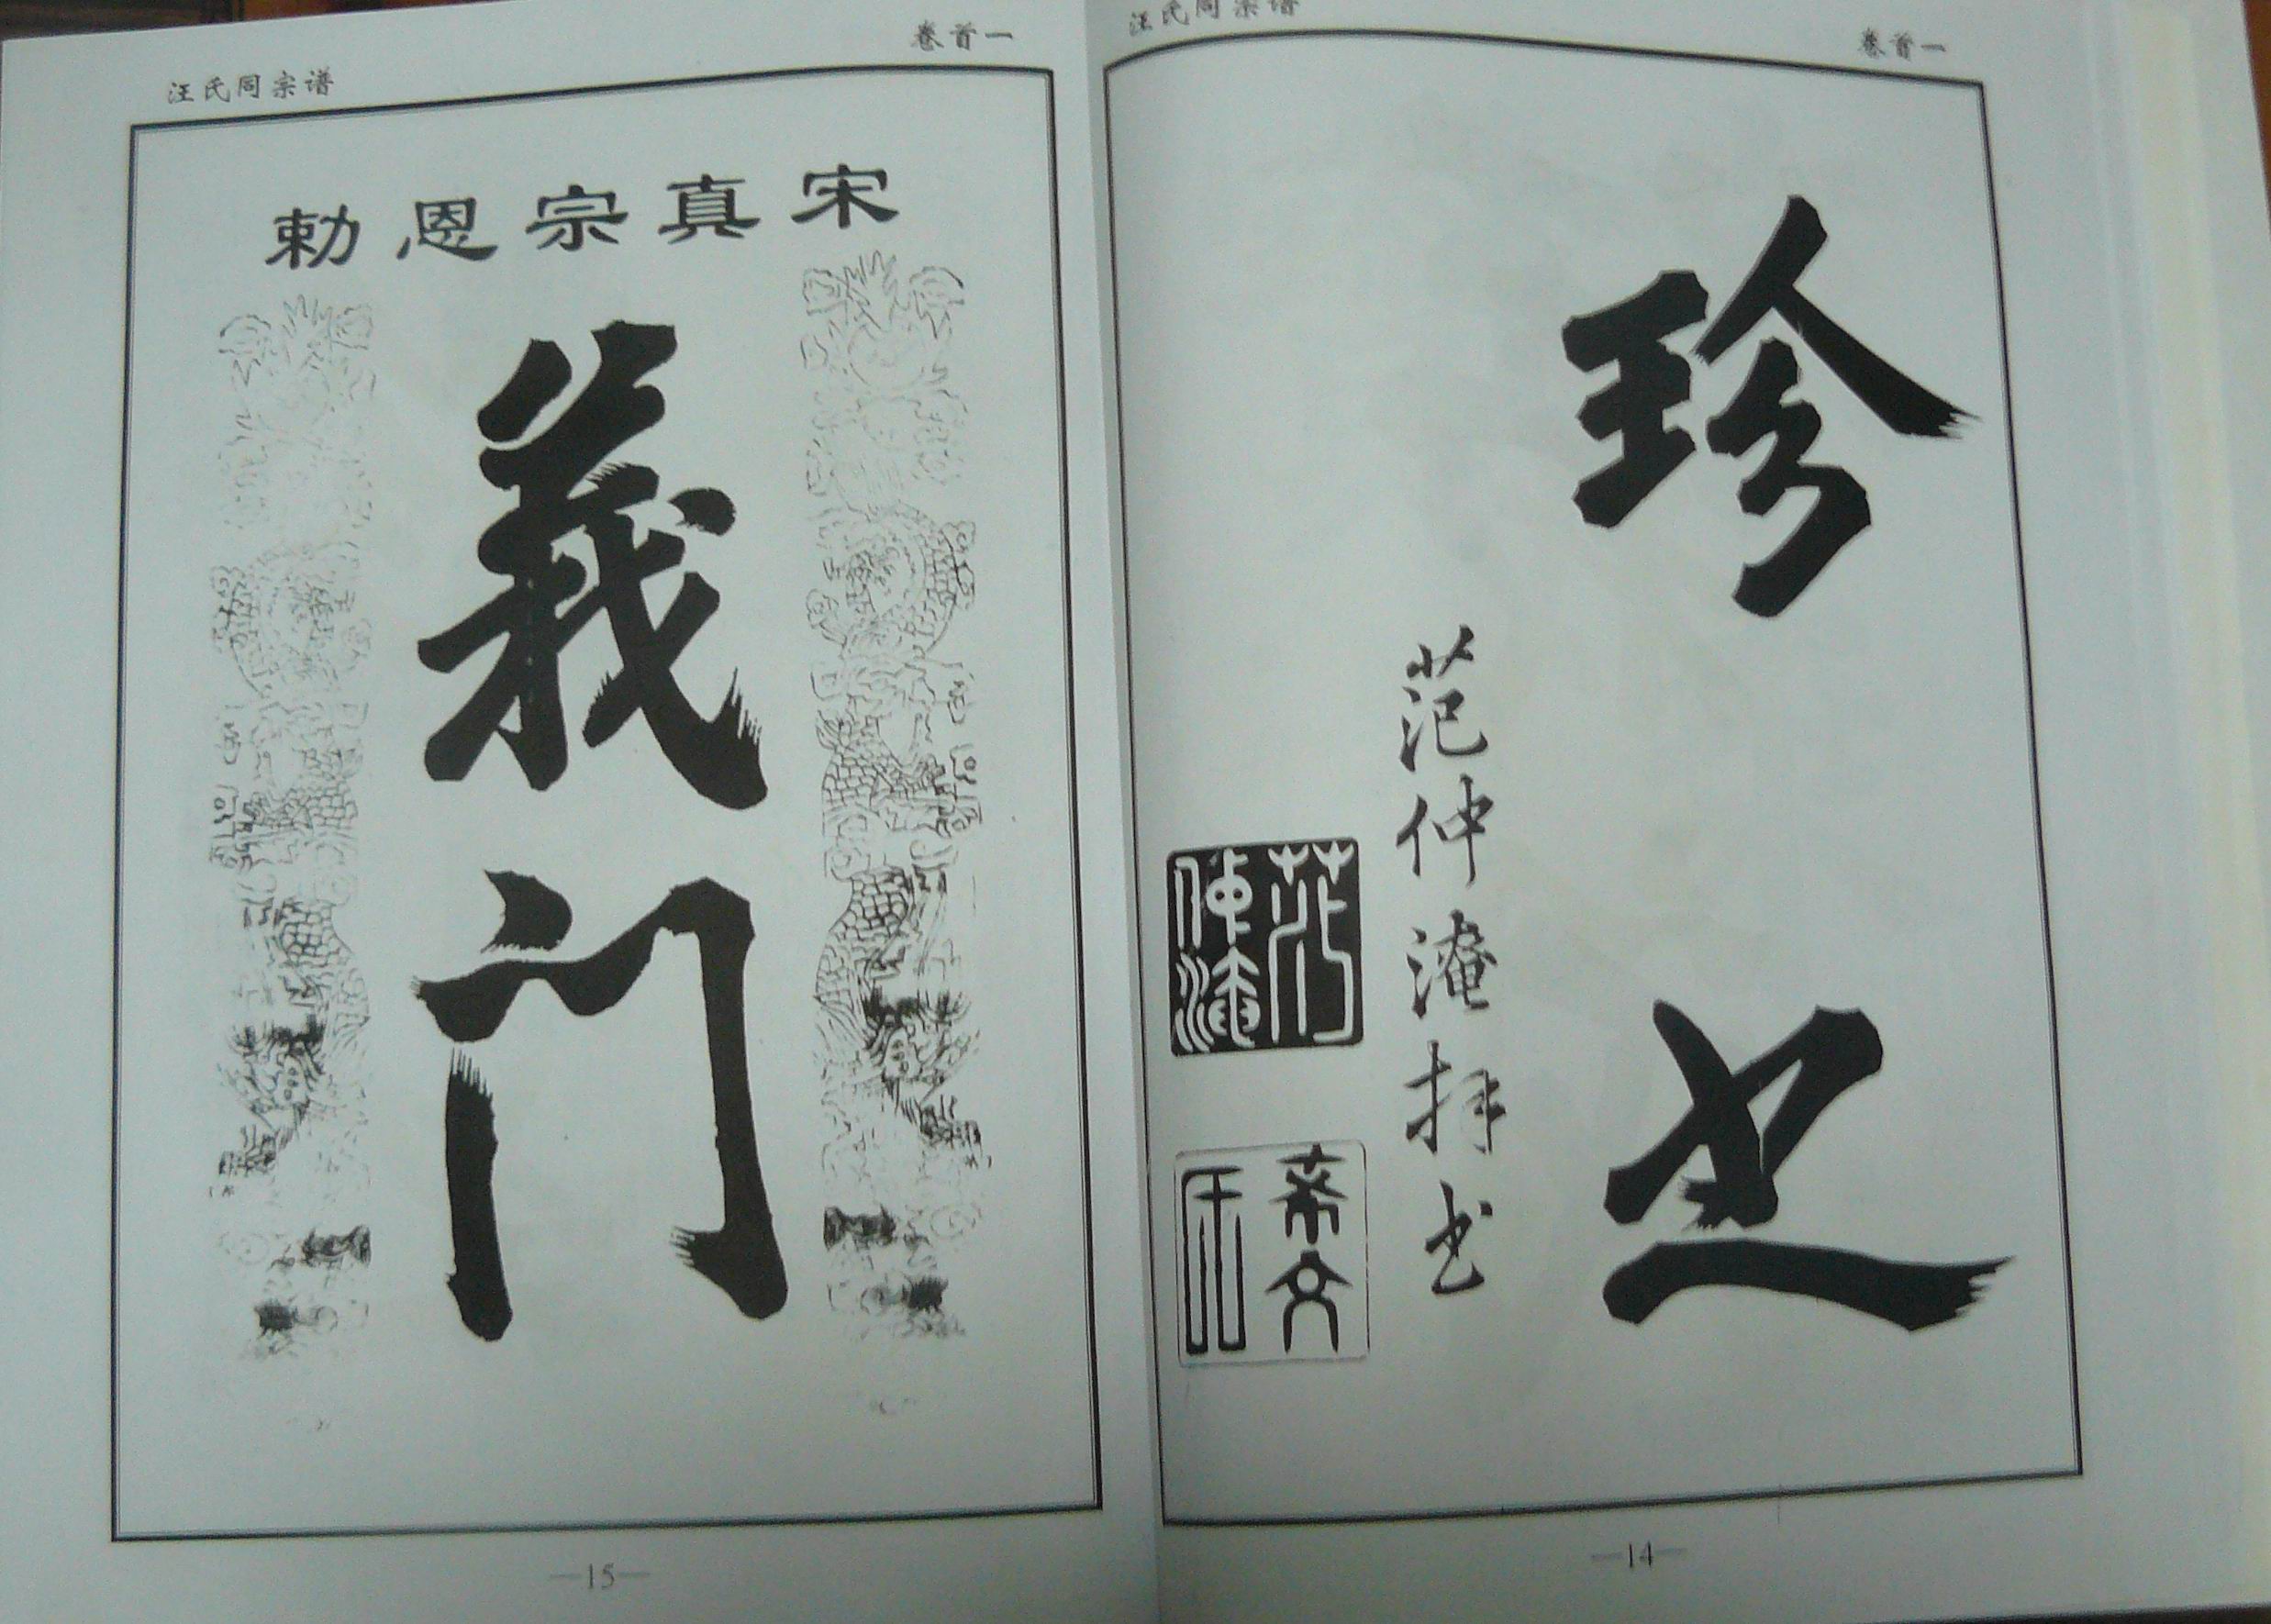 汪氏同宗谱
卷首一
珍
也
范仲淹拜书
范仲淹
希文
—14—
汪氏同宗谱
卷首一
宋真宗恩勅
義门
—15—